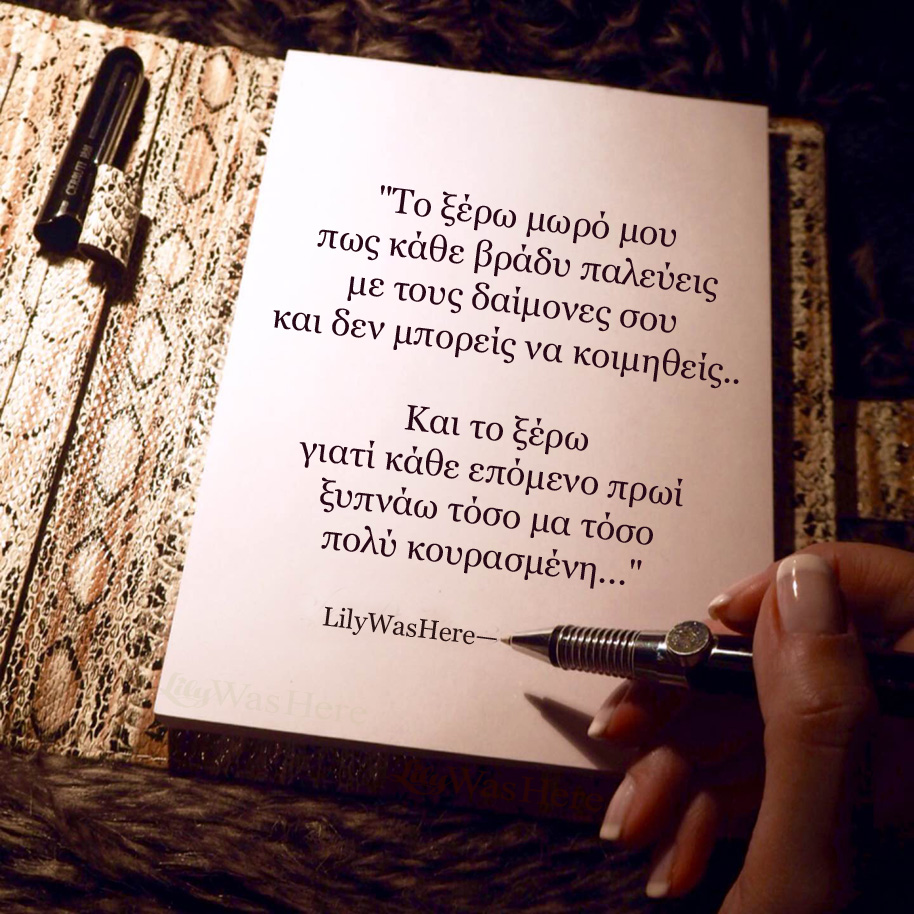 "Το ξέρω μωρό μου
πως κάθε βράδυ παλεύεις
με τους δαίμονες σου
και δεν μπορείς να κοιμηθείς..
Και το ξέρω
γιατί κάθε επόμενο πρωί
ξυπνάω τόσο μα τόσο
πολύ κουρασμένη..."
LilyWasHere—
LilyWasHere
LilyWasHere